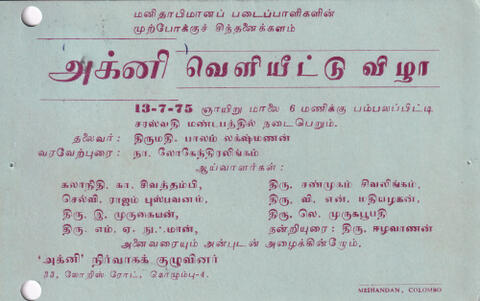 மனிதாபிமானப் படைப்பாளிகளின்
முற்போக்குச் சிந்தனைக்களம்
அக்னி வெளியீட்டு விழா
13-7-75 ஞாயிறு மாலை 6 மணிக்கு பம்பலப்பிட்டி
சரஸ்வதி மண்டபத்தில் நடைபெறும்.
தலைவர் : திருமதி. பாலம் லக்ஷ்மணன்
வரவேற்புரை : நா. லோகேந்திரலிங்கம்
ஆய்வாளர்கள் :
கலாநிதி. கா. சிவத்தம்பி, திரு. சண்முகம் சிவலிங்கம்,
செல்வி. ராஜம் புஸ்பவனம், திரு. வி. என். மதியழகன்,
திரு. இ. முருகையன், திரு. லெ. முருகபூபதி
திரு. எம். ஏ. நுஃமான், நன்றியுரை : திரு. ஈழவாணன்
அனைவரையும் அன்புடன் அழைக்கின்றோம்.
‘அக்னி’ நிர்வாகக் குழுவினர்
33, லோறிஸ் ரோட், கொழும்பு-4.
MEIHANDAN, COLOMBO